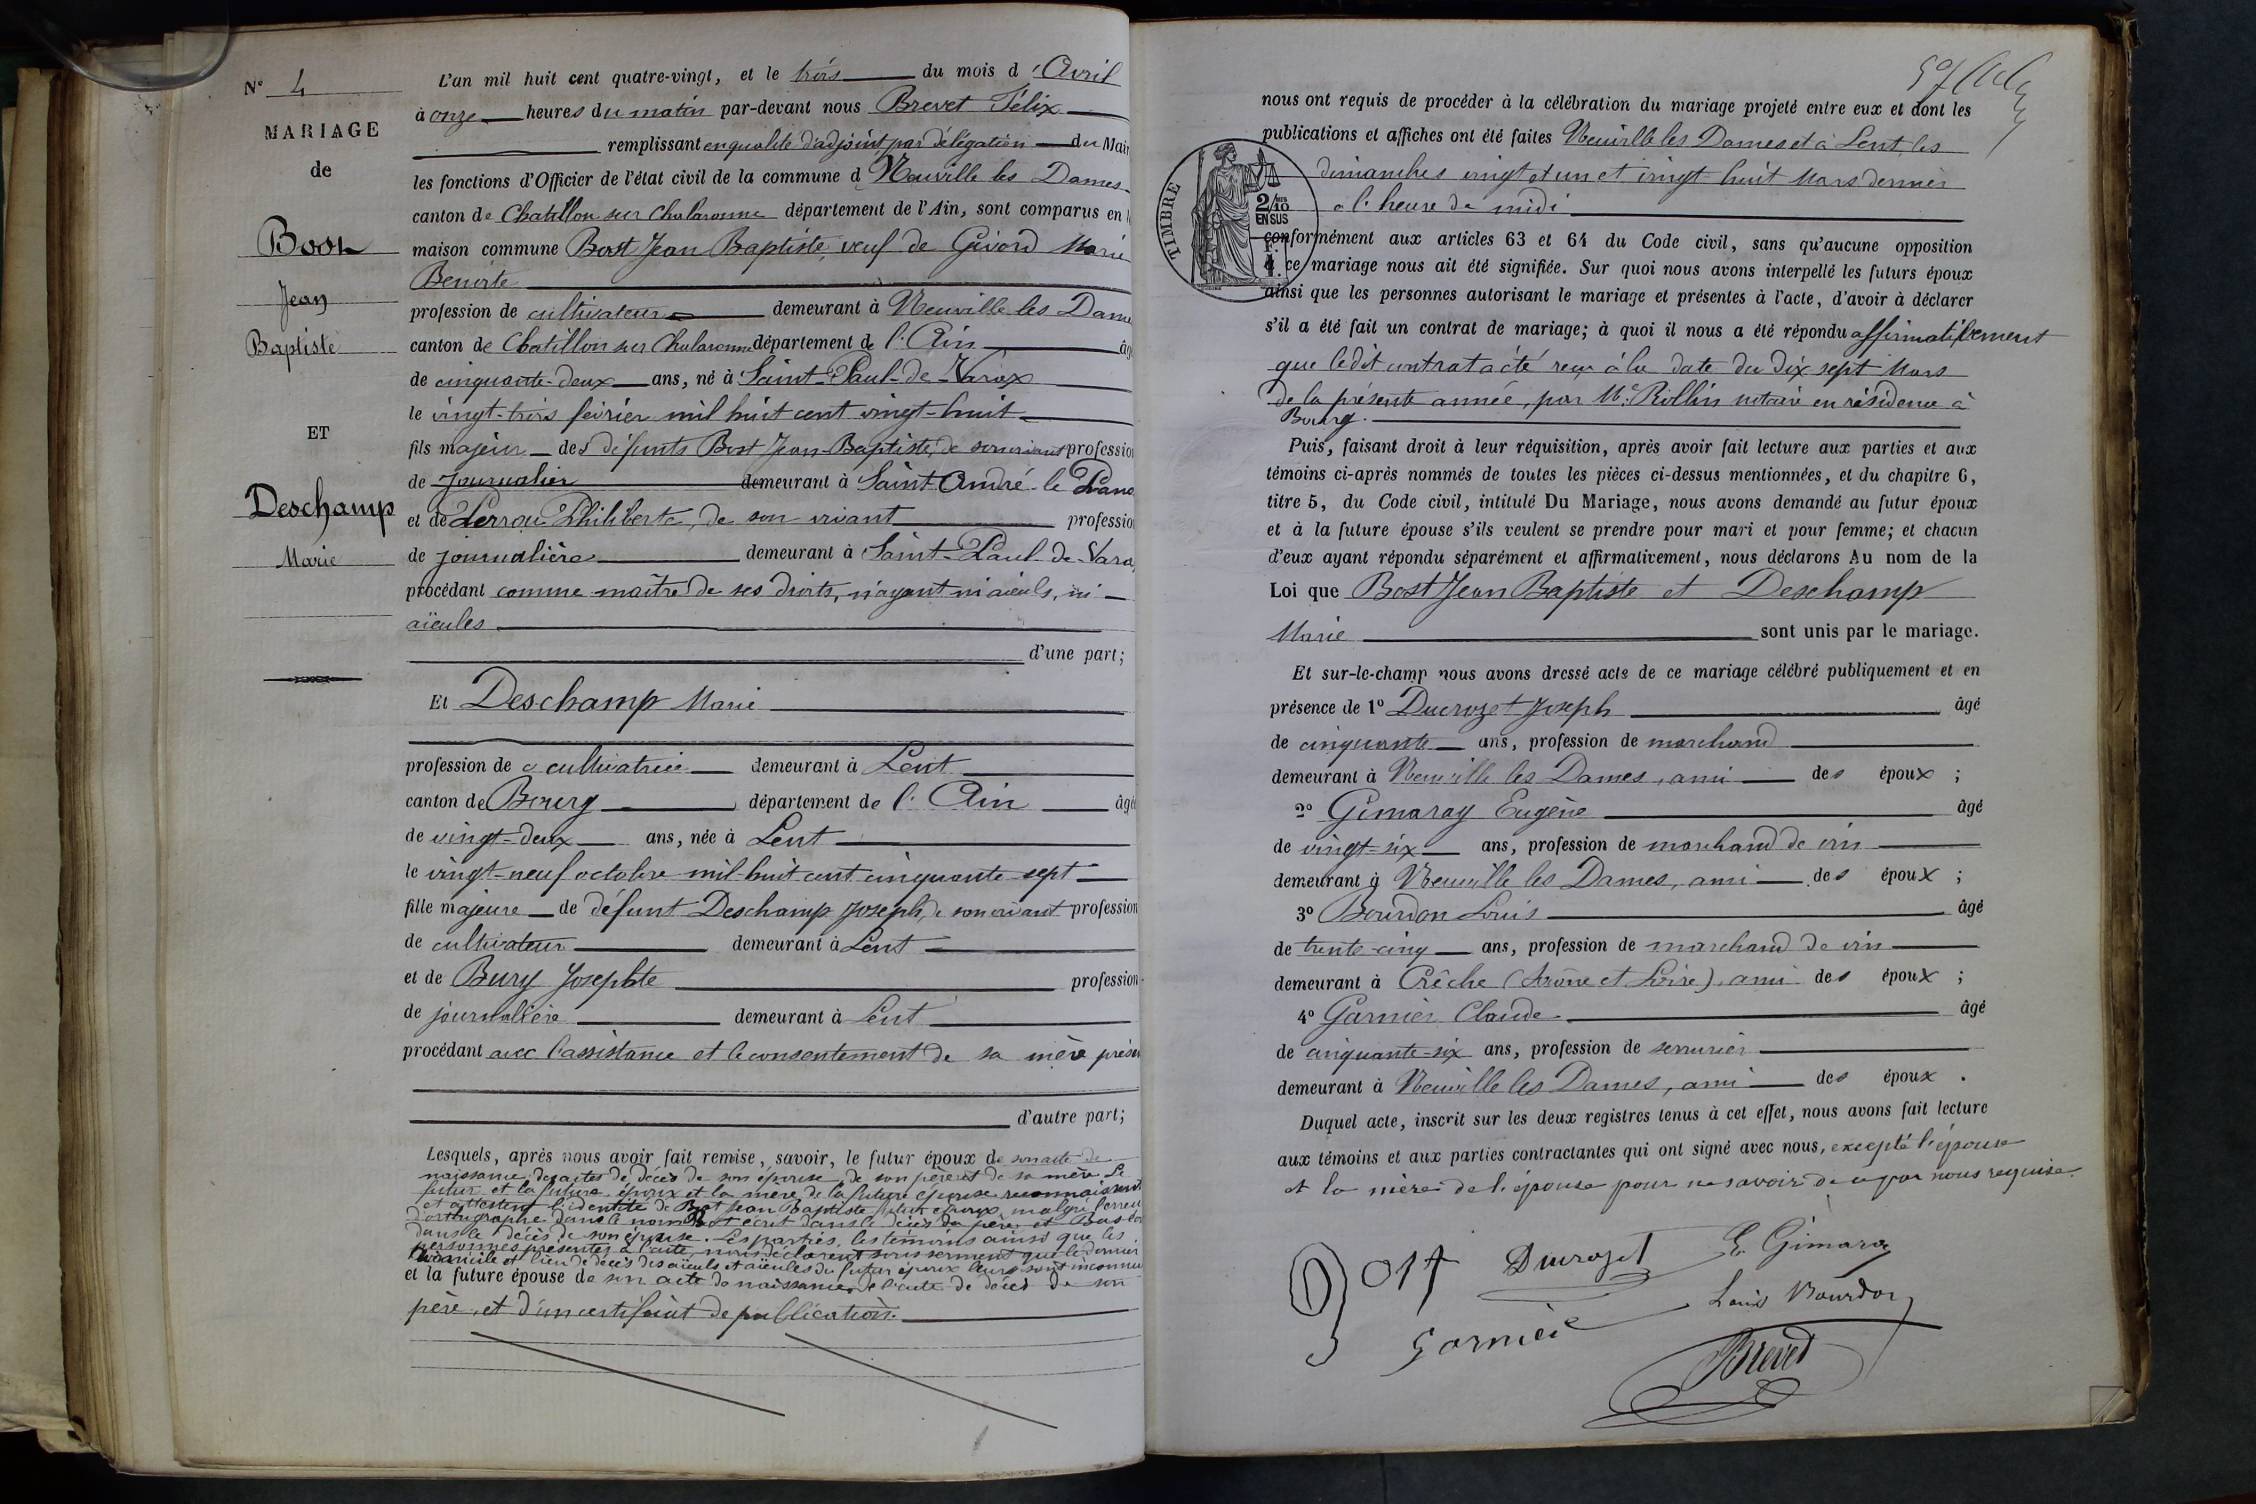 N° 4
MARIAGE
de
Bost
Jean
Baptiste
ET
Deschamp
Marie
L'an mil huit cent quatre-vingt, et le trois du mois d'Avril
à onze heures du matin par-devant nous Brevet Félix
remplissant en qualité d'adjoint par délégation du Mair
les fonctions d'Officier de l'état civil de la commune d Neuville les Dames
canton de Chatillon sur Chalaronne département de l'Ain, sont comparus en l
maison commune Bost Jean Baptiste, veuf de Givord Marie
Benoite
profession de cultivateur demeurant à Neuville les Dame
canton de Chatillon sur Chalaronne département de l'Ain âgé
de cinquante-deux ans, né à Saint-Paul-de-Varax
le vingt-trois février mil huit cent vingt-huit
fils majeur des défunts Bost Jean-Baptiste, de son vivant profession
de journalier demeurant à Saint André-le Panou
et de Perrou Philiberte, de son vivant profession
de journalière demeurant à Saint-Paul-de-Varax
procédant comme maître de ses droits, n'ayant ni aïeuls, ni
aïeules
d'une part;
Et Deschamp Marie
profession de cultivatrice demeurant à Lent
canton de Bourg département de l'Ain âgé
de vingt-deux ans, née à Lent
le vingt-neuf octobre mil-huit cent cinquante-sept
fille majeure de défunt Deschamp Joseph, de son vivant profession
de cultivateur demeurant à Lent
et de Bury Josephte profession
de journalière demeurant à Lent
procédant avec l'assistance et le consentement de sa mère présen
d'autre part;
Lesquels, après nous avoir fait remise, savoir, le futur époux de son acte de
naissance, des actes de décès de son épouse, de son père et de sa mère. Le
futur et la future époux et la mère de la future épouse reconnaissent
et attestent l'identité de Bost Jean Baptiste futur époux, malgré l'erreur
d'orthographe dans le nom Bost écrit dans le décès du père et
dans le décès de son épouse. Les parties, les témoins ainsi que les
personnes présentes à l'acte, nous déclarent sous serment que le dernier
domicile et lieu de décès des aïeuls et aïeules du futur époux leurs sont inconnus
et la future épouse de son acte de naissance, de l'acte de décès de son
père, et d'un certificat de publications.
nous ont requis de procéder à la célébration du mariage projeté entre eux et dont les
publications et affiches ont été faites Neuville les Dames et à Lent, les
dimanches vingt et un et vingt-huit Mars dernier
à l'heure de midi
TIMBRE
2/10 EN SUS
conformément aux articles 63 et 64 du Code civil, sans qu'aucune opposition
à ce mariage nous ait été signifiée. Sur quoi nous avons interpellé les futurs époux
ainsi que les personnes autorisant le mariage et présentes à l'acte, d'avoir à déclarer
s'il a été fait un contrat de mariage; à quoi il nous a été répondu affirmativement
que ledit contrat a été reçu à la date du dix sept Mars
de la présente année, par Me Rollin notaire en résidence à
Bourg.
Puis, faisant droit à leur réquisition, après avoir fait lecture aux parties et aux
témoins ci-après nommés de toutes les pièces ci-dessus mentionnées, et du chapitre 6,
titre 5, du Code civil, intitulé Du Mariage, nous avons demandé au futur époux
et à la future épouse s'ils veulent se prendre pour mari et pour femme; et chacun
d'eux ayant répondu séparément et affirmativement, nous déclarons Au nom de la
Loi que Bost Jean Baptiste et Deschamp
Marie sont unis par le mariage.
Et sur-le-champ nous avons dressé acte de ce mariage célébré publiquement et en
présence de 1° Ducrozet Joseph âgé
de cinquante ans, profession de marchand
demeurant à Neuville les Dames, ami des époux ;
2° Gimaray Eugène âgé
de vingt-six ans, profession de marchand de vin
demeurant à Neuville les Dames, ami des époux ;
3° Bourdon Louis âgé
de trente-cinq ans, profession de marchand de vin
demeurant à Crêche (Saône et Loire), ami des époux ;
4° Garnier Claude âgé
de cinquante-six ans, profession de serrurier
demeurant à Neuville les Dames, ami des époux.
Duquel acte, inscrit sur les deux registres tenus à cet effet, nous avons fait lecture
aux témoins et aux parties contractantes qui ont signé avec nous, excepté l'épouse
et la mère de l'épouse pour ne savoir de ce par nous requise.
Bost Ducrozet E. Gimaray
Garnier Louis Bourdon
Brevet